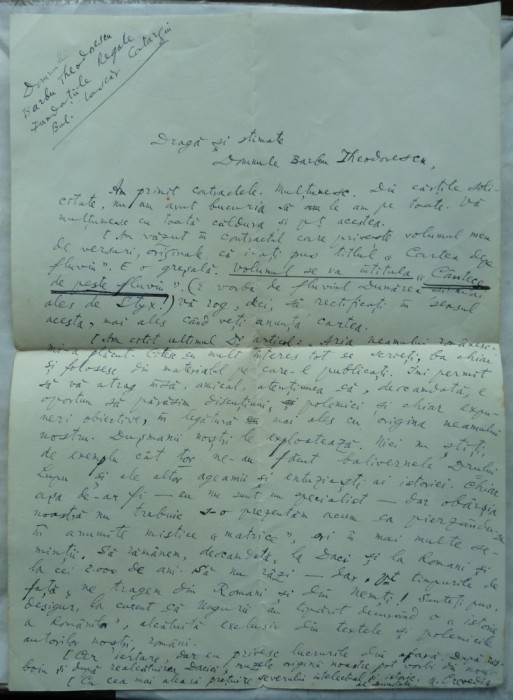 Domnule
Barbu Theodorescu
Fundațiile Regale
Bul. Lascăr Catargiu
Dragă și stimate
Domnule Barbu Theodorescu,
Am primit contractele. Mulțumesc. Din cărțile soli-
citate, nu am avut bucuria să le am pe toate. Vă
mulțumesc cu toată căldura și pt acestea.
Am văzut în contractul care privește volumul meu
de versuri, originale, că i-ați pus titlul "Cartea
fluvii". E o greșală. Volumul se va intitula "Cântece
de peste fluvii". (E vorba de fluviul Dunărea
ales de Styx!) Vă rog, deci, să rectificați în sensul
acesta, mai ales când veți anunța cartea.
Am citit ultimul D. articol: Aria neamului românesc.
Mi-a plăcut. Citesc cu mult interes tot ce scrieți, ba chiar
și folosesc din materialul pe care-l publicați. Îmi permit
să vă atrag însă, amical, atențiunea că, deocamdată, e
oportun să părăsim discuțiuni, și polemici și chiar expu-
neri obiective, în legătură mai ales cu originea neamului
nostru. Dușmanii noștri le exploatează. Nici nu știți,
de exemplu cât ne-au făcut balivernele Drului
Lupu și ale altor ageamii și entuziaști ai istoriei. Chiar
așa de-ar fi — eu nu sunt un specialist — dar obârșia
noastră nu trebuie s-o prezentăm acum ca pierzându-se
în anumite mistice "matrice", ori în mai multe se-
minții. Să rămânem, deocamdată, la Daci și la Romani și
la cei 2000 de ani. Să nu râzi — dar, timpurile de
față, ne tragem din Romani și din Nemți! Sunteți pus,
desigur, la curent că Ungurii au tipărit o istorie
a Românilor", alcătuită exclusiv din textele și polemicile
autorilor noștri, români.
Cer iertare, dar eu privesc lucrurile din afară. După răz-
boiu și după reîntregirea Daciei, originea noastre pot vorbi
Cu cea mai aleasă prețuire